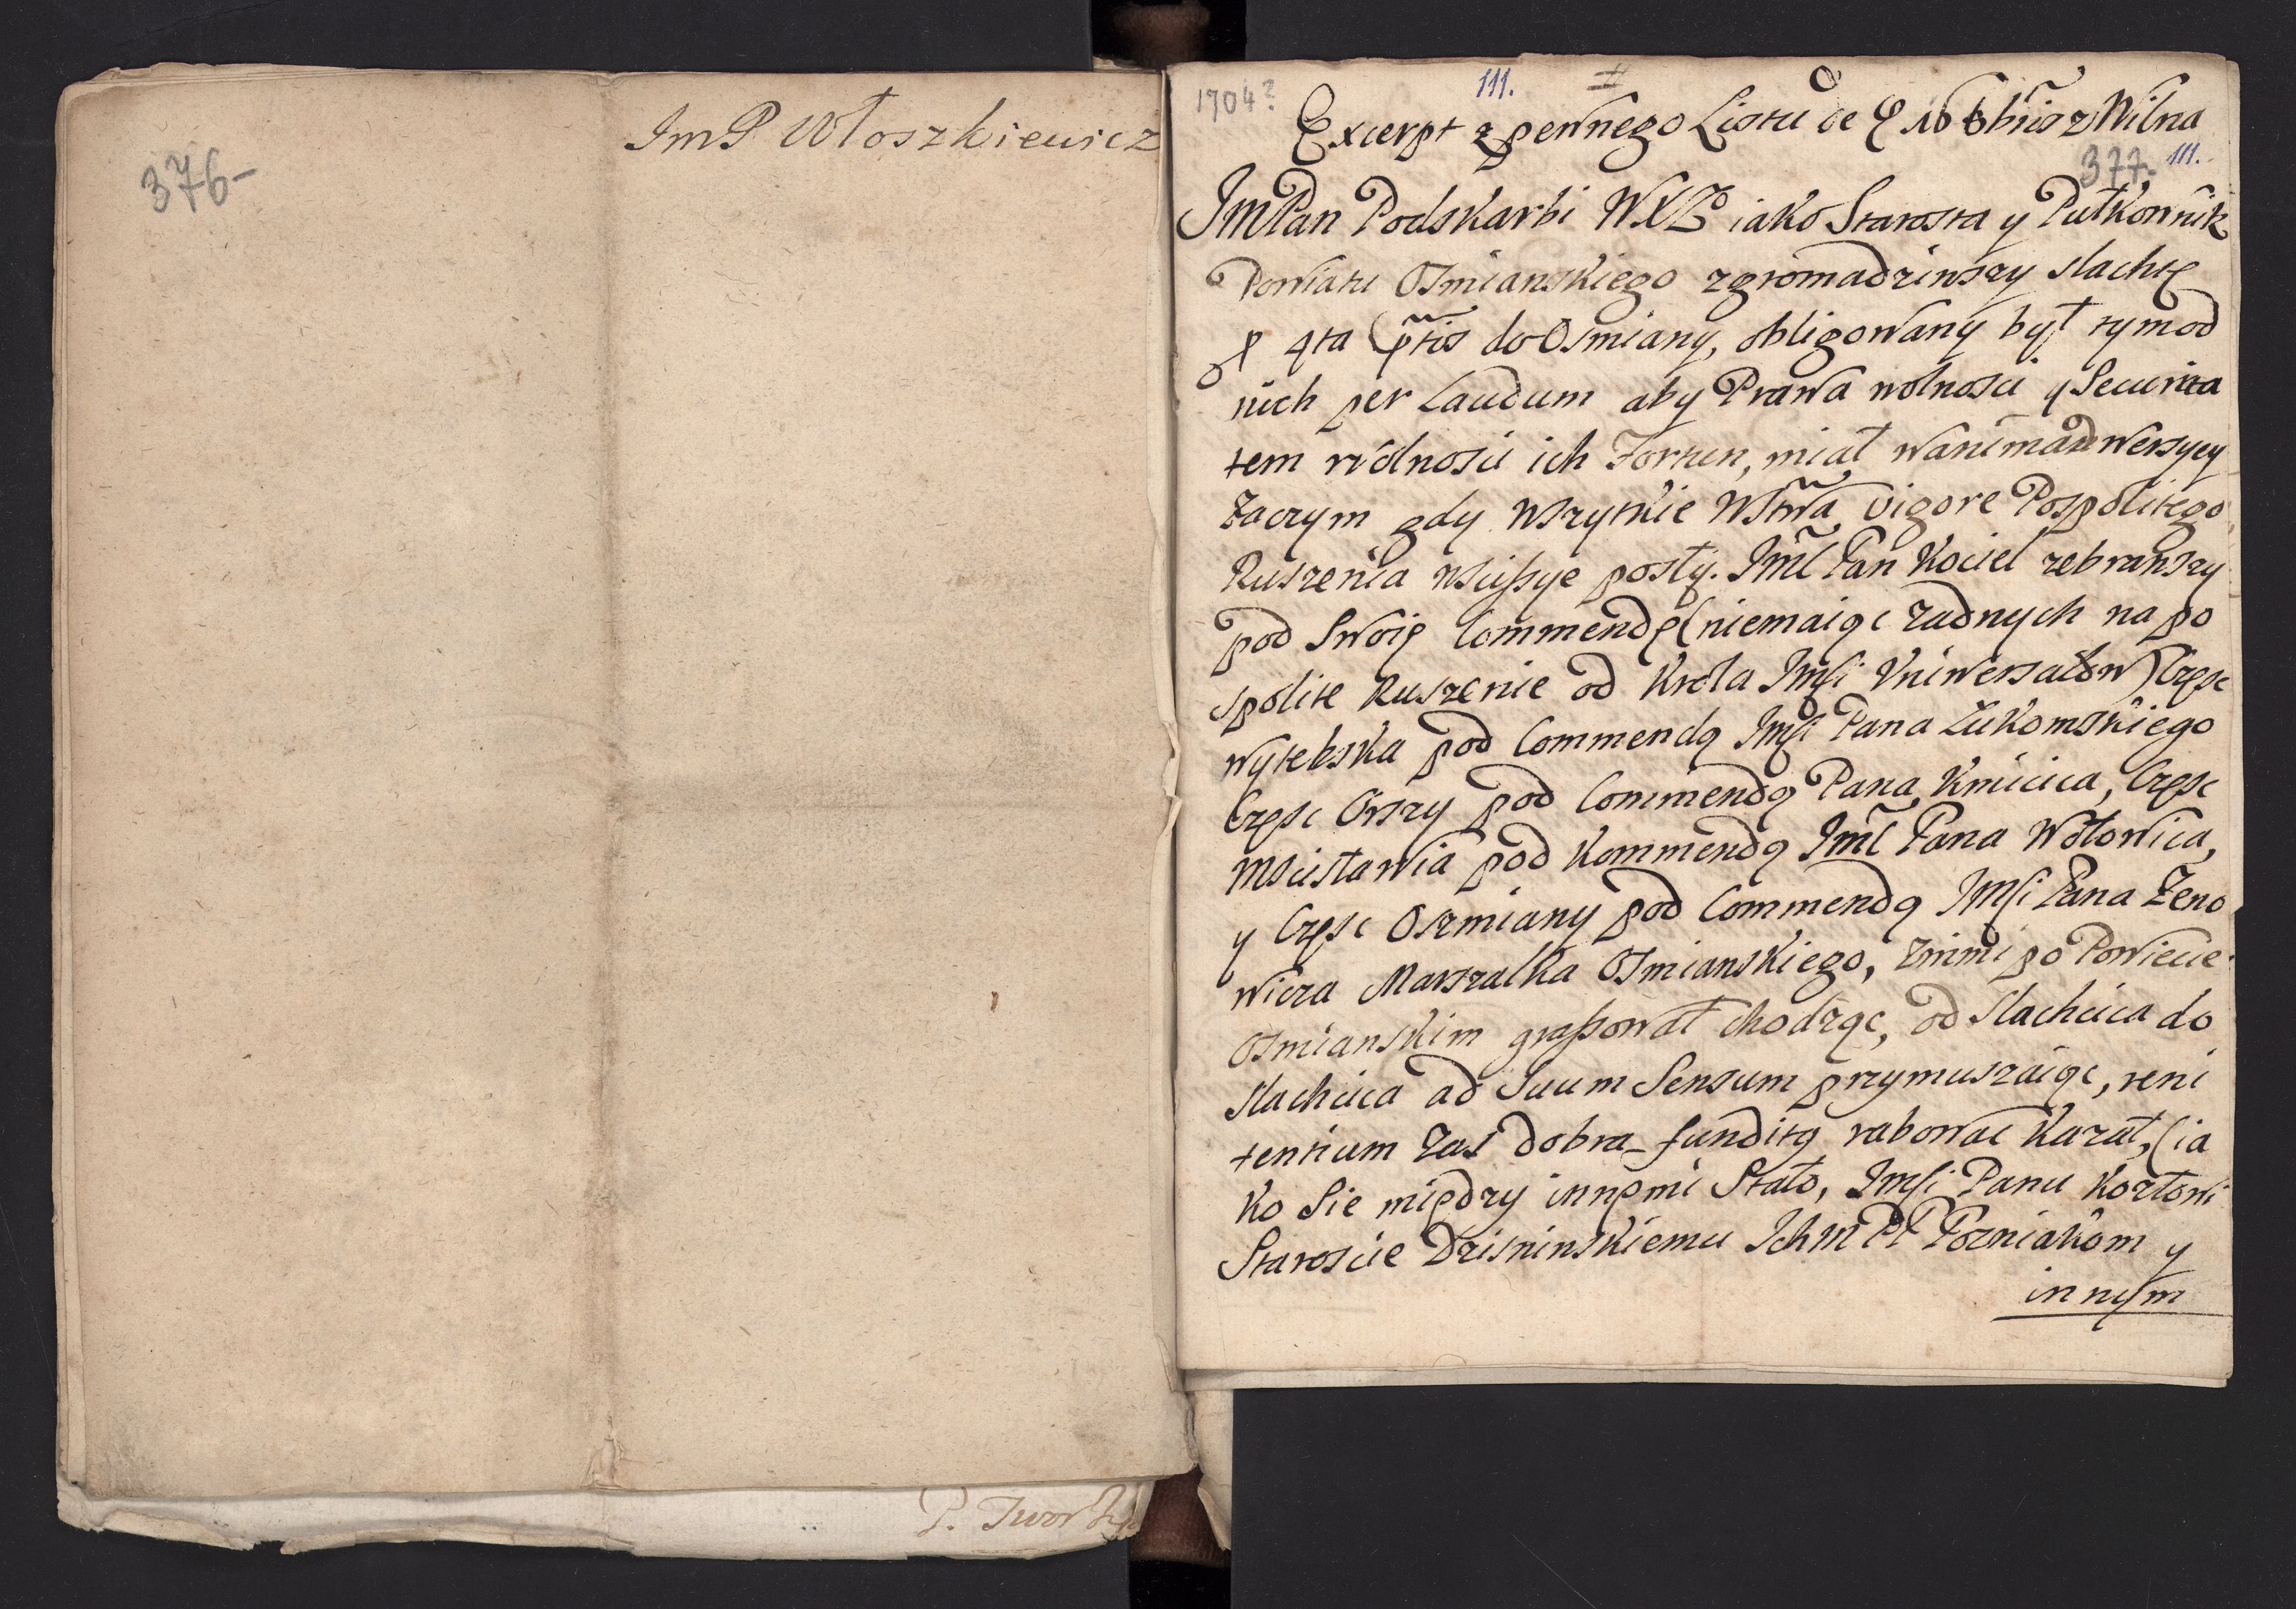 376-
ImP Włoszkiewicz
P. Twor
1704?
111.
Excerpt z pewnego Listu de 16 8bris z Wilna
377. 111.
JMPan Podskarbi WXL iako Starosta y Pułkownik
Powiatu Osmianskiego zgromadziwszy slachtę
p 4ta Pntis do Osmiany, obligowany był tym od
nich per Laudum aby Prawa wolnosci y Securita
tem wolnosci ich Fortun, miał w animadwersyey
Zaczym gdy wszytkie Wstwa vigore Pospolitego
Ruszenia poszły. Jmć Pan Kociel zebrawszy
pod Swoię Commendę (niemaiąc żadnych na po
spolite Ruszenie od Krola Jmsi Vniwersałow) Częsc
Wytebska pod Commendą Jmsi Pana Łukomskiego
Częsc Orszy pod Commendą Pana Kmicica, Częsc
Mscisławia pod Kommendą Jmć Pana Wołowica,
y Częsc Oszmiany pod Commendą JMsi Pana Zeno
wicza Marszalka Osmianskiego, z nimi po Powiecie
Osmianskim graſsował chodząc, od slachcica do
slachcica ad Suum Sensum przymuszaiąc, reni
tentium zas dobra funditq rabowac kazał, (ia
ko Sie między innęmi Stało, Jmsi Panu Kozłowi
Staroscie Dzisninskiemu Ichm PP Pozniakom y
innym